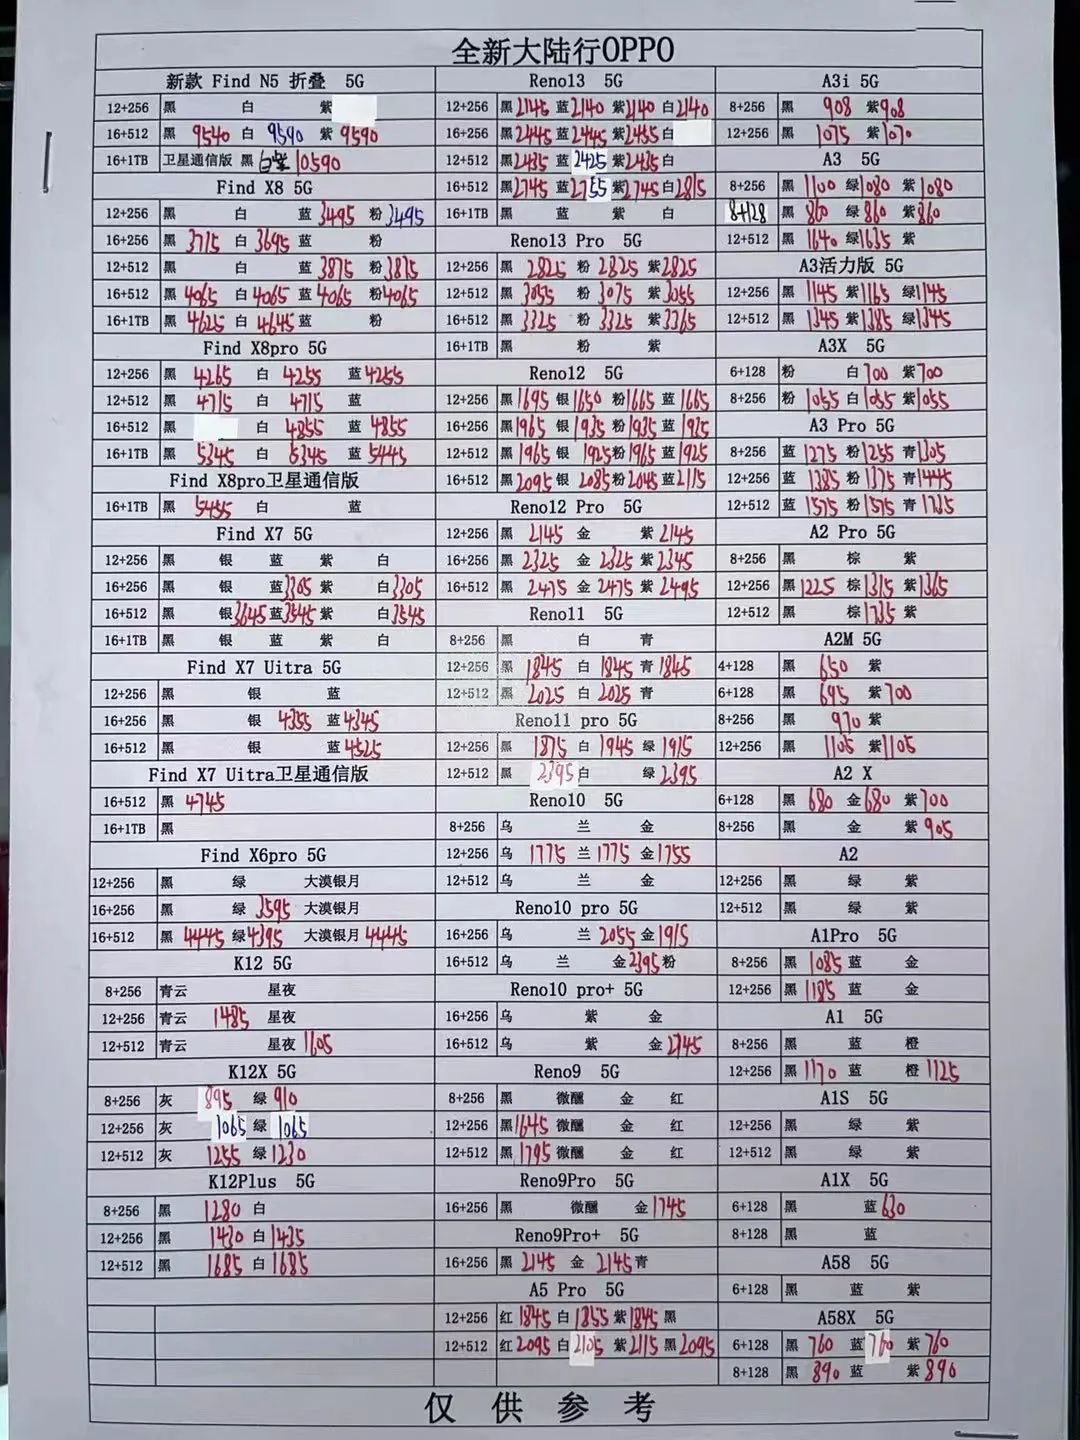 全新大陆行OPPO
新款 Find N5 折叠 5G
12+256 黑 白 紫
16+512 黑 9540 白 9590 紫 9590
16+1TB 卫星通信版 黑 白紫 10590
Find X8 5G
12+256 黑 白 蓝 3495 粉 3495
16+256 黑 3715 白 3695 蓝 粉
12+512 黑 白 蓝 3875 粉 3875
16+512 黑 4065 白 4065 蓝 4065 粉 4065
16+1TB 黑 4625 白 4645 蓝 粉
Find X8pro 5G
12+256 黑 4265 白 4255 蓝 4255
12+512 黑 4715 白 4715 蓝
16+512 黑 白 4855 蓝 4855
16+1TB 黑 5345 白 5345 蓝 5445
Find X8pro卫星通信版
16+1TB 黑 5455 白 蓝
Find X7 5G
12+256 黑 银 蓝 紫 白
16+256 黑 银 蓝 3305 紫 白 3305
16+512 黑 银 3645 蓝 3545 紫 白 3545
16+1TB 黑 银 蓝 紫 白
Find X7 Uitra 5G
12+256 黑 银 蓝
16+256 黑 银 4355 蓝 4345
16+512 黑 银 蓝 4525
Find X7 Uitra卫星通信版
16+512 黑 4745
16+1TB 黑
Find X6pro 5G
12+256 黑 绿 大漠银月
16+256 黑 绿 3595 大漠银月
16+512 黑 4445 绿 4395 大漠银月 4445
K12 5G
8+256 青云 星夜
12+256 青云 1485 星夜
12+512 青云 星夜 1605
K12X 5G
8+256 灰 895 绿 910
12+256 灰 1065 绿 1065
12+512 灰 1255 绿 1230
K12Plus 5G
8+256 黑 1280 白
12+256 黑 1430 白 1435
12+512 黑 1685 白 1685
Reno13 5G
12+256 黑 2145 蓝 2140 紫 2140 白 2140
16+256 黑 2445 蓝 2445 紫 2455 白
12+512 黑 2435 蓝 2425 紫 2435 白
16+512 黑 2745 蓝 2755 紫 2745 白 2815
16+1TB 黑 蓝 紫 白
Reno13 Pro 5G
12+256 黑 2825 粉 2825 紫 2825
12+512 黑 3055 粉 3075 紫 3055
16+512 黑 3325 粉 3325 紫 3365
16+1TB 黑 粉 紫
Reno12 5G
12+256 黑 1695 银 1650 粉 1665 蓝 1665
16+256 黑 1965 银 1935 粉 1935 蓝 1925
12+512 黑 1965 银 1925 粉 1965 蓝 1925
16+512 黑 2095 银 2085 粉 2045 蓝 2115
Reno12 Pro 5G
12+256 黑 2145 金 紫 2145
16+256 黑 2325 金 2325 紫 2345
16+512 黑 2475 金 2475 紫 2495
Reno11 5G
8+256 黑 白 青
12+256 黑 1845 白 1845 青 1845
12+512 黑 2025 白 2025 青
Reno11 pro 5G
12+256 黑 1875 白 1945 绿 1915
12+512 黑 2395 白 绿 2395
Reno10 5G
8+256 乌 兰 金
12+256 乌 1775 兰 1775 金 1755
12+512 乌 兰 金
Reno10 pro 5G
16+256 乌 兰 2055 金 1915
16+512 乌 兰 金 2395 粉
Reno10 pro+ 5G
16+256 乌 紫 金
16+512 乌 紫 金 2745
Reno9 5G
8+256 黑 微醺 金 红
12+256 黑 1645 微醺 金 红
12+512 黑 1795 微醺 金 红
Reno9Pro 5G
16+256 黑 微醺 金 1745
Reno9Pro+ 5G
16+256 黑 2145 金 2145 青
A5 Pro 5G
12+256 红 1845 白 1855 紫 1845 黑
12+512 红 2095 白 2105 紫 2115 黑 2095
A3i 5G
8+256 黑 908 紫 908
12+256 黑 1075 紫 1070
A3 5G
8+256 黑 1100 绿 1080 紫 1080
8+128 黑 860 绿 860 紫 860
12+512 黑 1640 绿 1635 紫
A3活力版 5G
12+256 黑 1145 紫 1165 绿 1145
12+512 黑 1345 紫 1385 绿 1345
A3X 5G
6+128 粉 白 700 紫 700
8+256 粉 1055 白 1055 紫 1055
A3 Pro 5G
8+256 蓝 1275 粉 1255 青 1305
12+256 蓝 1385 粉 1375 青 1445
12+512 蓝 1575 粉 1575 青 1735
A2 Pro 5G
8+256 黑 棕 紫
12+256 黑 1225 棕 1315 紫 1365
12+512 黑 棕 1735 紫
A2M 5G
4+128 黑 650 紫
6+128 黑 695 紫 700
8+256 黑 970 紫
12+256 黑 1105 紫 1105
A2 X
6+128 黑 680 金 680 紫 700
8+256 黑 金 紫 905
A2
12+256 黑 绿 紫
12+512 黑 绿 紫
A1Pro 5G
8+256 黑 1085 蓝 金
12+256 黑 1185 蓝 金
A1 5G
8+256 黑 蓝 橙
12+256 黑 1170 蓝 橙 1125
A1S 5G
12+256 黑 绿 紫
12+512 黑 绿 紫
A1X 5G
6+128 黑 蓝 630
8+128 黑 蓝
A58 5G
6+128 黑 蓝 紫
A58X 5G
6+128 黑 760 蓝 760 紫 760
8+128 黑 890 蓝 紫 890
仅供参考